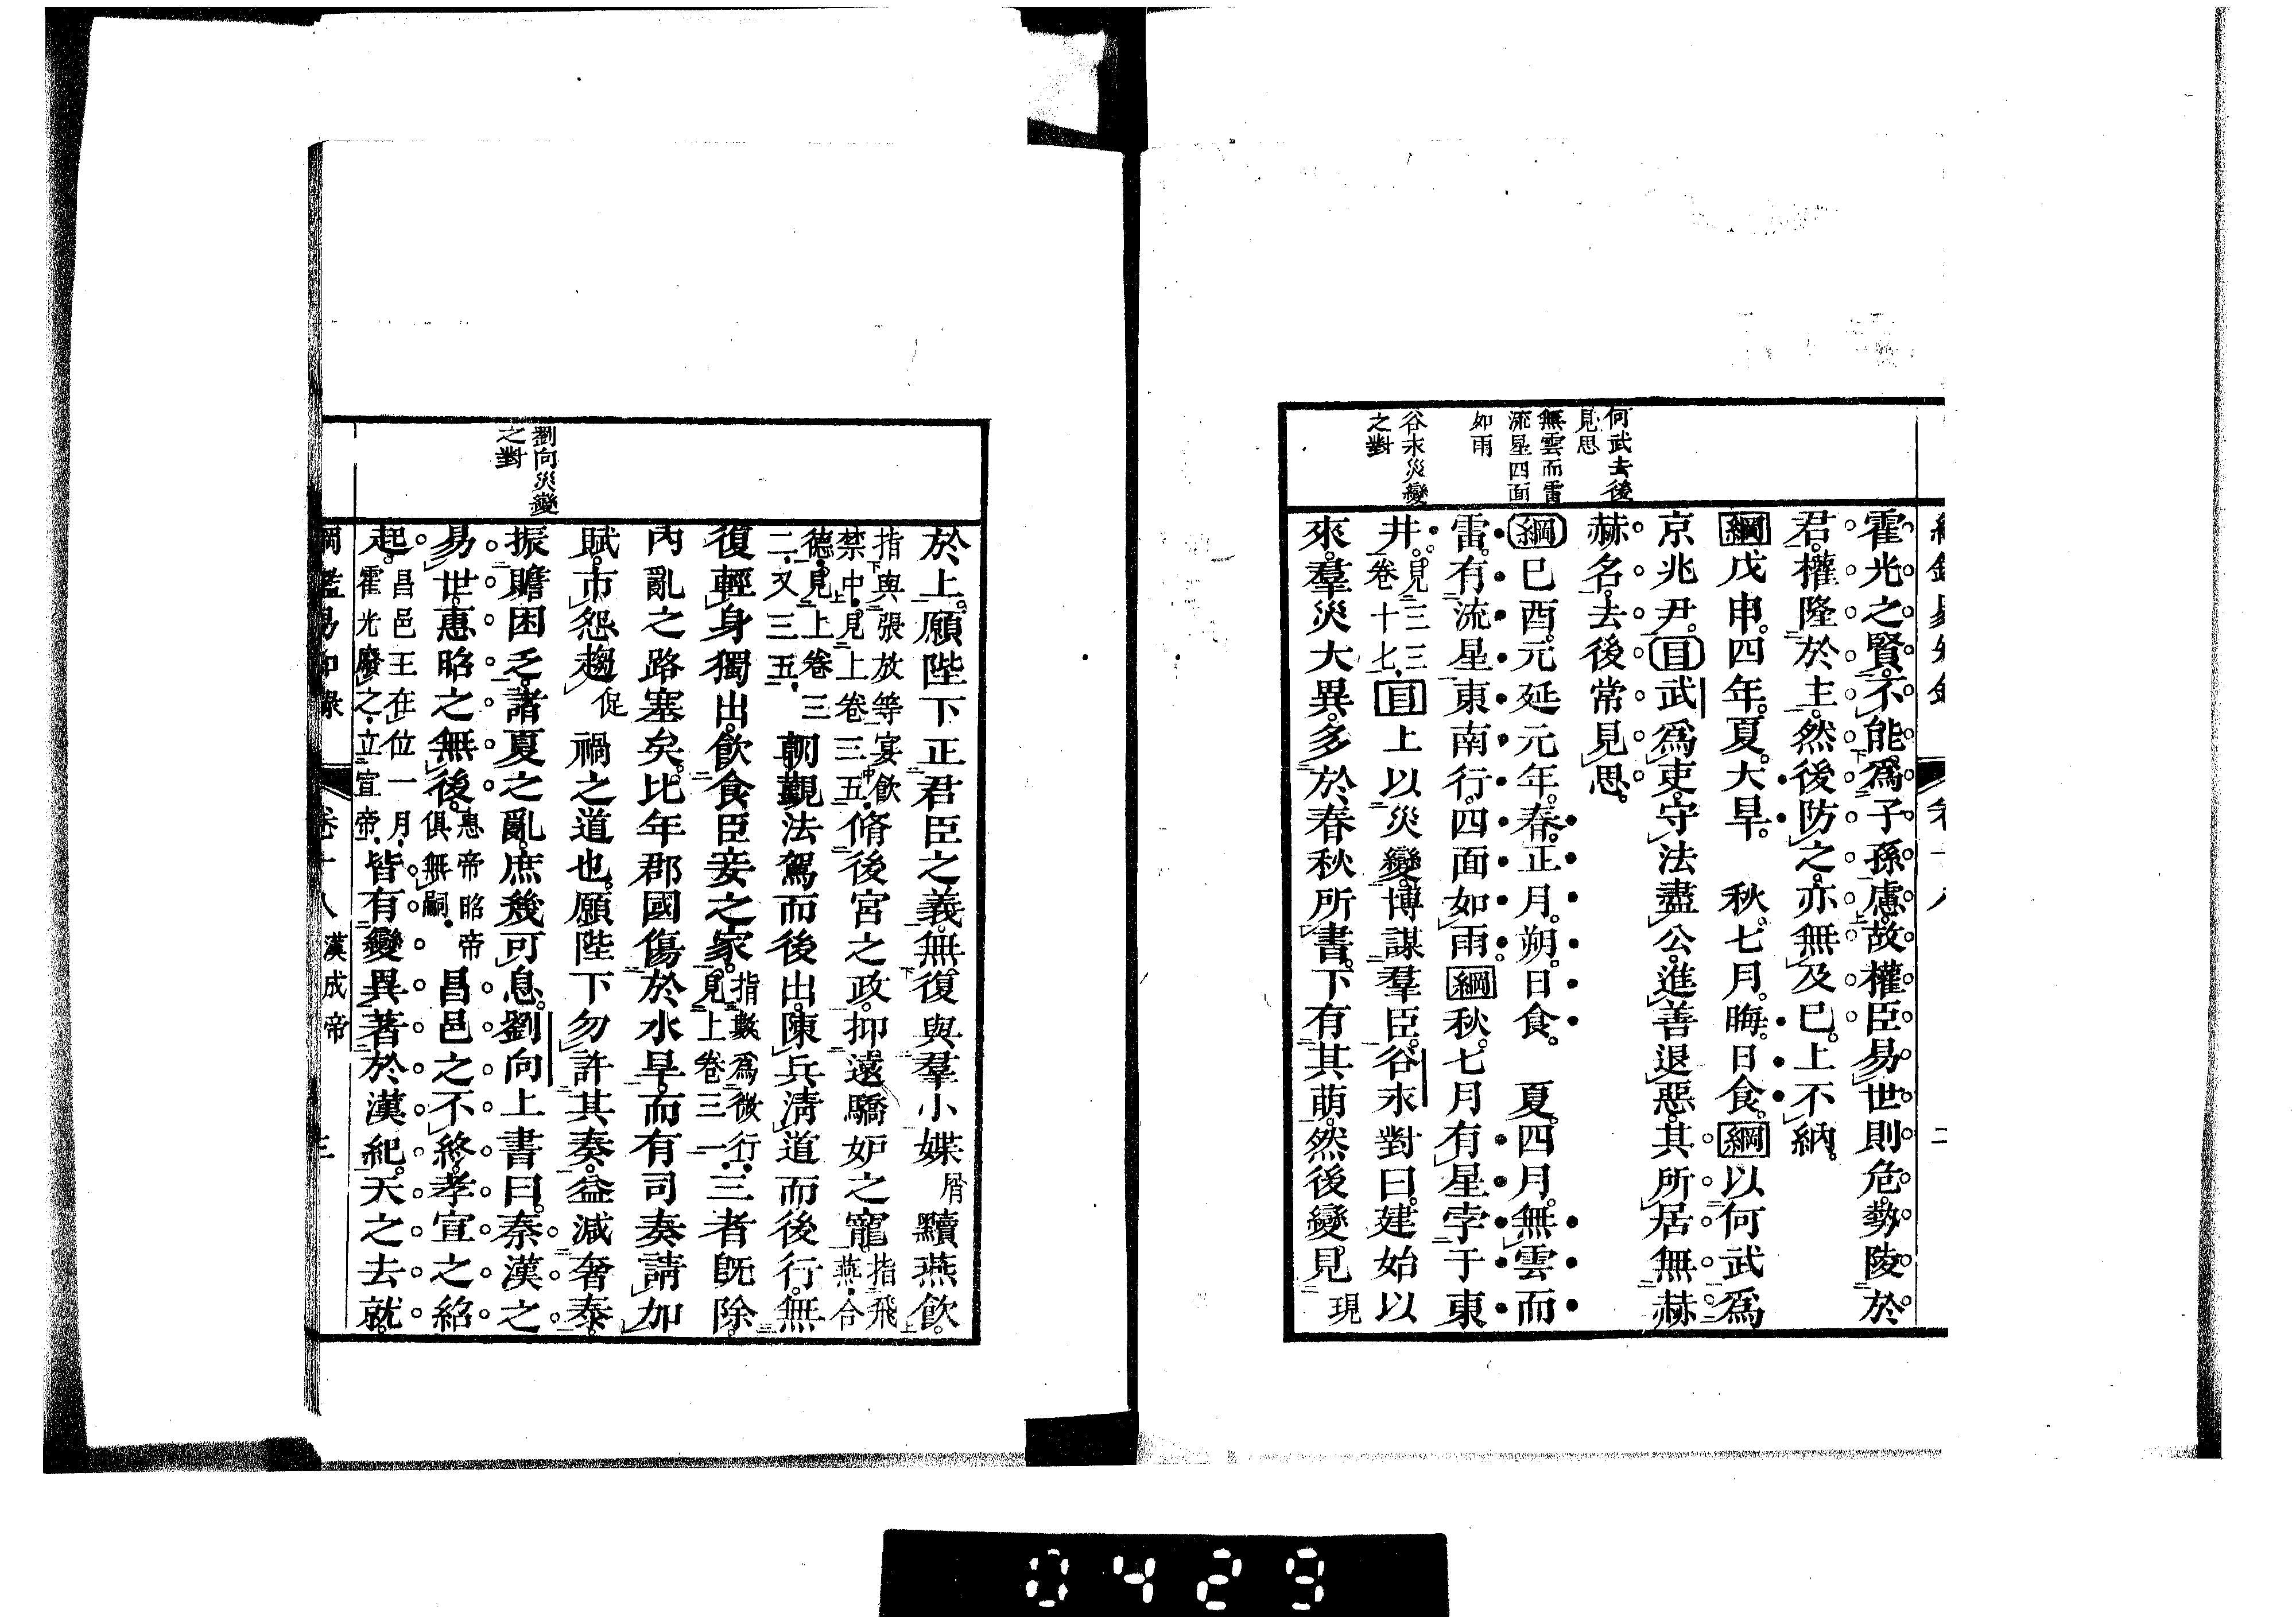 何武去後
見思
無雲而雷
流星四面
如雨
谷永災變
之對
霍光之賢。不能爲子孫慮。故權臣易世則危。勢陵於
君。權隆於主。然後防之。亦無及已。上不納。
綱戊申。四年。夏。大旱。　秋。七月。晦。日食。綱以何武爲
京兆尹。目武爲吏。守法盡公。進善退惡。其所居無赫
赫名。去後常見思。
綱己酉。元延元年。春。正月。朔。日食。　夏。四月。無雲而
雷。有流星東南行。四面如雨。綱秋。七月有星孛于東
井。見三三卷十七。目上以災變。博謀羣臣。谷永對曰。建始以
來。羣災大異。多於春秋所書。下有其萌。然後變見現
劉向災變
之對
於上。願陛下正君臣之義。無復與羣小媟屑黷燕飮。
指與張放等宴飮禁中。見上卷三五。脩後宮之政。抑遠驕妒之寵。指飛燕。合
德。見上卷三二。又三五。朝覲法駕而後出。陳兵淸道而後行。無
復輕身獨出。飮食臣妾之家。指數爲微行。見上卷三一。三者旣除。
內亂之路塞矣。比年郡國傷於水旱。而有司奏請加
賦。市怨趨促禍之道也。願陛下勿許其奏。益減奢泰。
振贍困乏。諸夏之亂。庶幾可息。劉向上書曰。秦漢之
易世。惠昭之無後。惠帝昭帝俱無嗣。昌邑之不終。孝宣之紹
起。昌邑王在位一月。霍光廢之。立宣帝。皆有變異。著於漢紀。天之去就。
綱鑑易知錄　卷十八　漢成帝　三